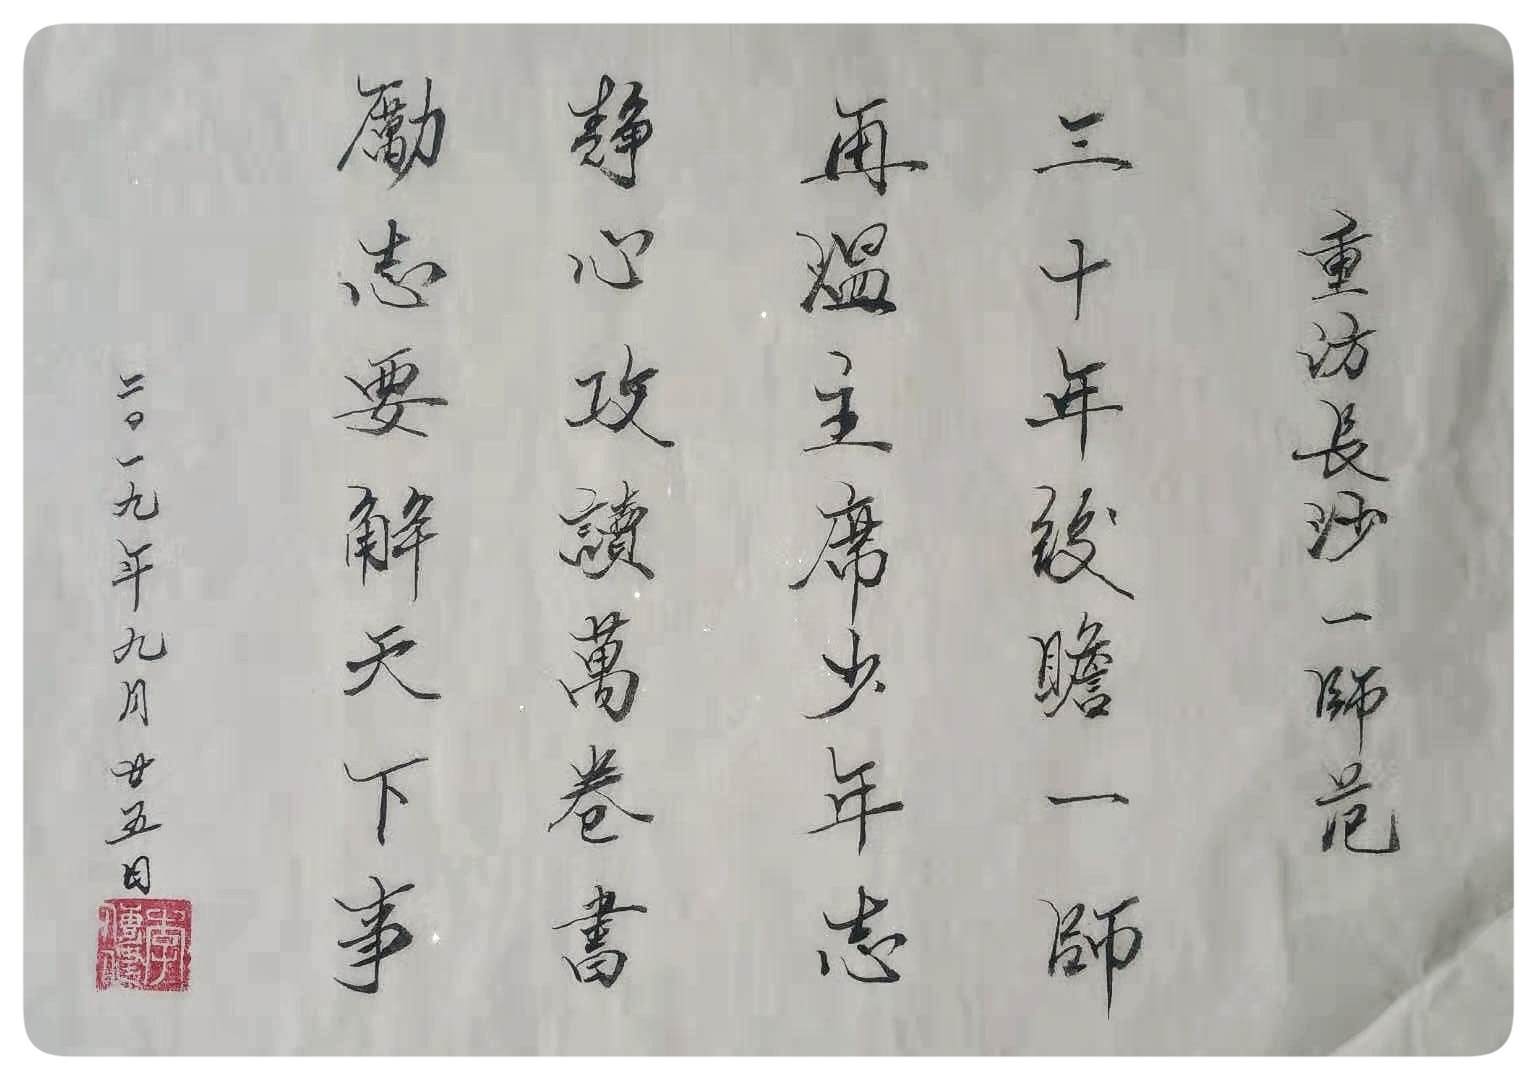 重访長沙一師范
三十年後瞻一師
再温主席少年志
靜心攻讀萬卷書
勵志要解天下事
二〇一九年九月廿五日